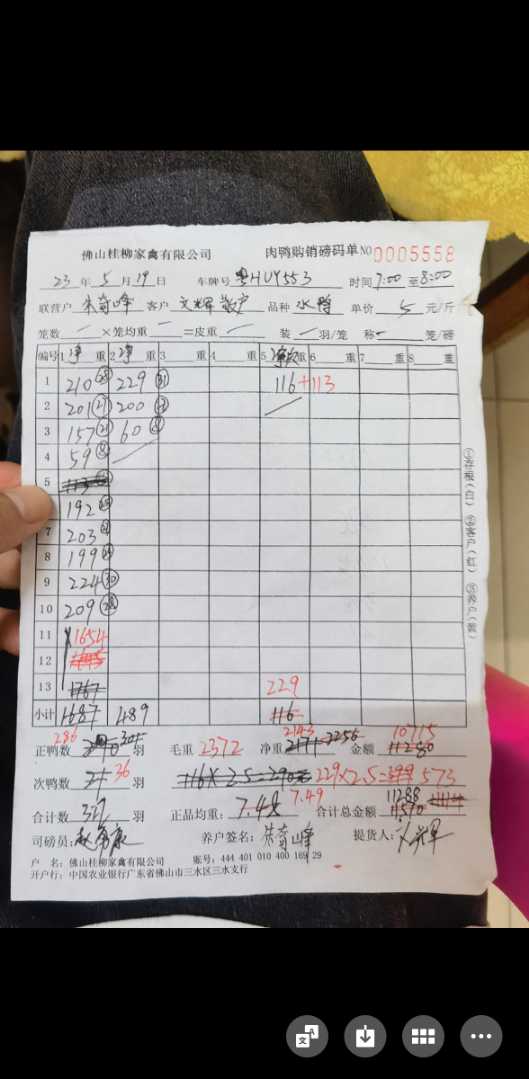 佛山桂柳家禽有限公司 肉鸭购销磅码单 NO 0005558
23 年 5 月 19 日 车牌号 粤HUY553 时间 7:00 至 8:00
联营户 朱奇峰 客户 文辉散户 品种 水鸭 单价 5 元/斤
笼数 × 笼均重 =皮重 装 羽/笼 称 笼/磅
编号 1 净 重 2 净 重 3 重 4 重 5 重 6 重 7 重 8 重
1 210 229 116 +113
2 201 27 200
3 157 21 60 8
4 59 8
5 113
192
7 203
8 199
9 224 30
10 209 28
11 1654
12
13 1767 229
小计 1687 489 116
286 2143 2256 10715
正鸭数 羽 毛重 2372 净重 金额 11280
次鸭数 36 羽 116×2.5=290元 229×2.5= 573
合计数 羽 正品均重: 7.48 7.49 合计总金额 11288 11570
司磅员: 养户签名: 朱奇峰 提货人:
户 名: 佛山桂柳家禽有限公司 账号: 444 401 010 400 169 29
开户行: 中国农业银行广东省佛山市三水区三水支行
①存根(白) ②客户(红) ③养户(黄)